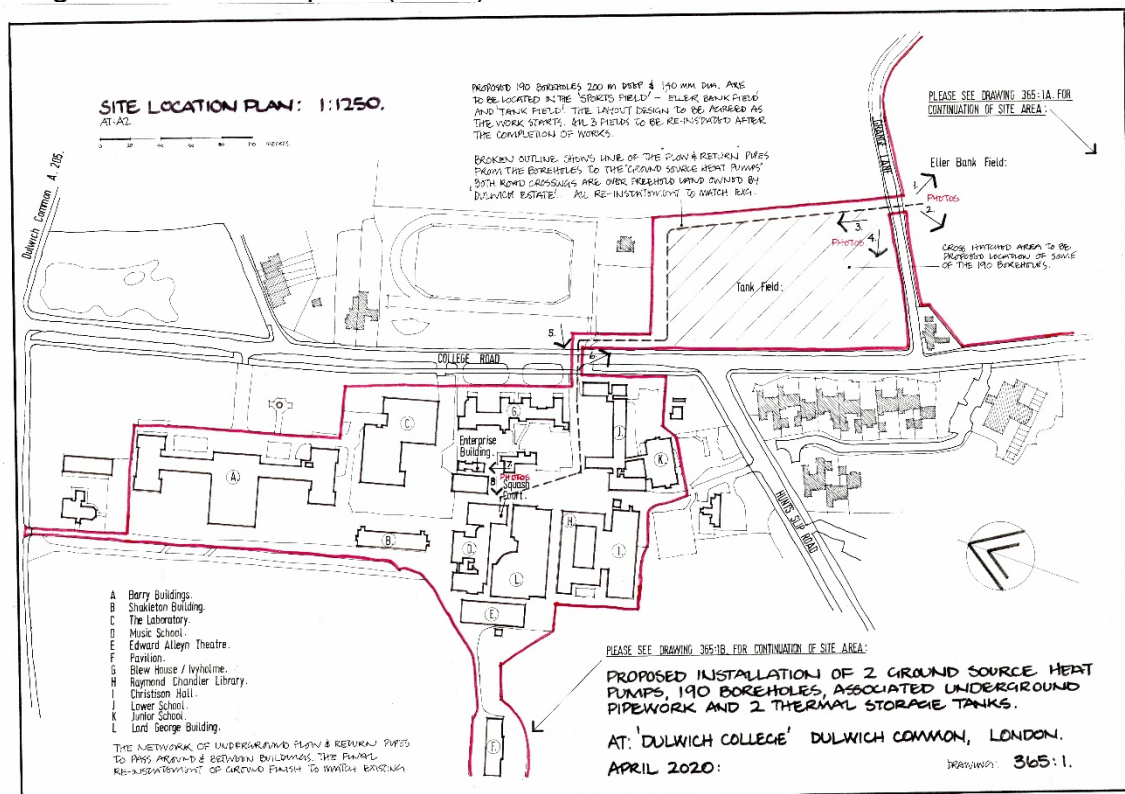 SITE LOCATION PLAN: 1:1250.
AT: A2
METERS
PROPOSED 190 BOREHOLES 200 m DEEP & 140 MM DIA. ARE
TO BE LOCATED IN THE 'SPORTS FIELD' – ELLER BANK FIELD
AND 'TANK FIELD'. THE LAYOUT DESIGN TO BE AGREED AS
THE WORK STARTS. ALL 3 FIELDS TO BE RE-INSTATED AFTER
THE COMPLETION OF WORKS.
BROKEN OUTLINE SHOWS LINE OF THE 'FLOW & RETURN' PIPES
FROM THE BOREHOLES TO THE 'GROUND SOURCE HEAT PUMPS'
BOTH ROAD CROSSINGS ARE OVER FREEHOLD LAND OWNED BY
'DULWICH ESTATE'. ALL RE-INSTATEMENT TO MATCH EXG.
PLEASE SEE DRAWING 365:1A. FOR
CONTINUATION OF SITE AREA:
Dulwich Common A. 205.
GRANGE LANE
Eller Bank Field:
1.
PHOTOS
2.
3.
4.
PHOTOS
CROSS HATCHED AREA TO BE
PROPOSED LOCATION OF SOME
OF THE 190 BOREHOLES.
Tank Field:
5.
6.
COLLEGE ROAD
HUNTS SLIP ROAD
Enterprise
Building.
7.
PHOTOS
8.
Squash
Court.
A
B
C
D
G
H
I
J
K
L
E
F
A Barry Buildings.
B Shakleton Building.
C The Laboratory.
D Music School.
E Edward Alleyn Theatre.
F Pavilion.
G Blew House / Ivyholme.
H Raymond Chandler Library.
I Christison Hall.
J Lower School.
K Junior School.
L Lord George Building.
THE NETWORK OF UNDERGROUND FLOW & RETURN PIPES
TO PASS AROUND & BETWEEN BUILDINGS. THE FINAL
RE-INSTATEMENT OF GROUND FINISH TO MATCH EXISTING
PLEASE SEE DRAWING 365:1B. FOR CONTINUATION OF SITE AREA:
PROPOSED INSTALLATION OF 2 GROUND SOURCE HEAT
PUMPS, 190 BOREHOLES, ASSOCIATED UNDERGROUND
PIPEWORK AND 2 THERMAL STORAGE TANKS.
AT: 'DULWICH COLLEGE' DULWICH COMMON, LONDON.
APRIL 2020:
DRAWING: 365:1.